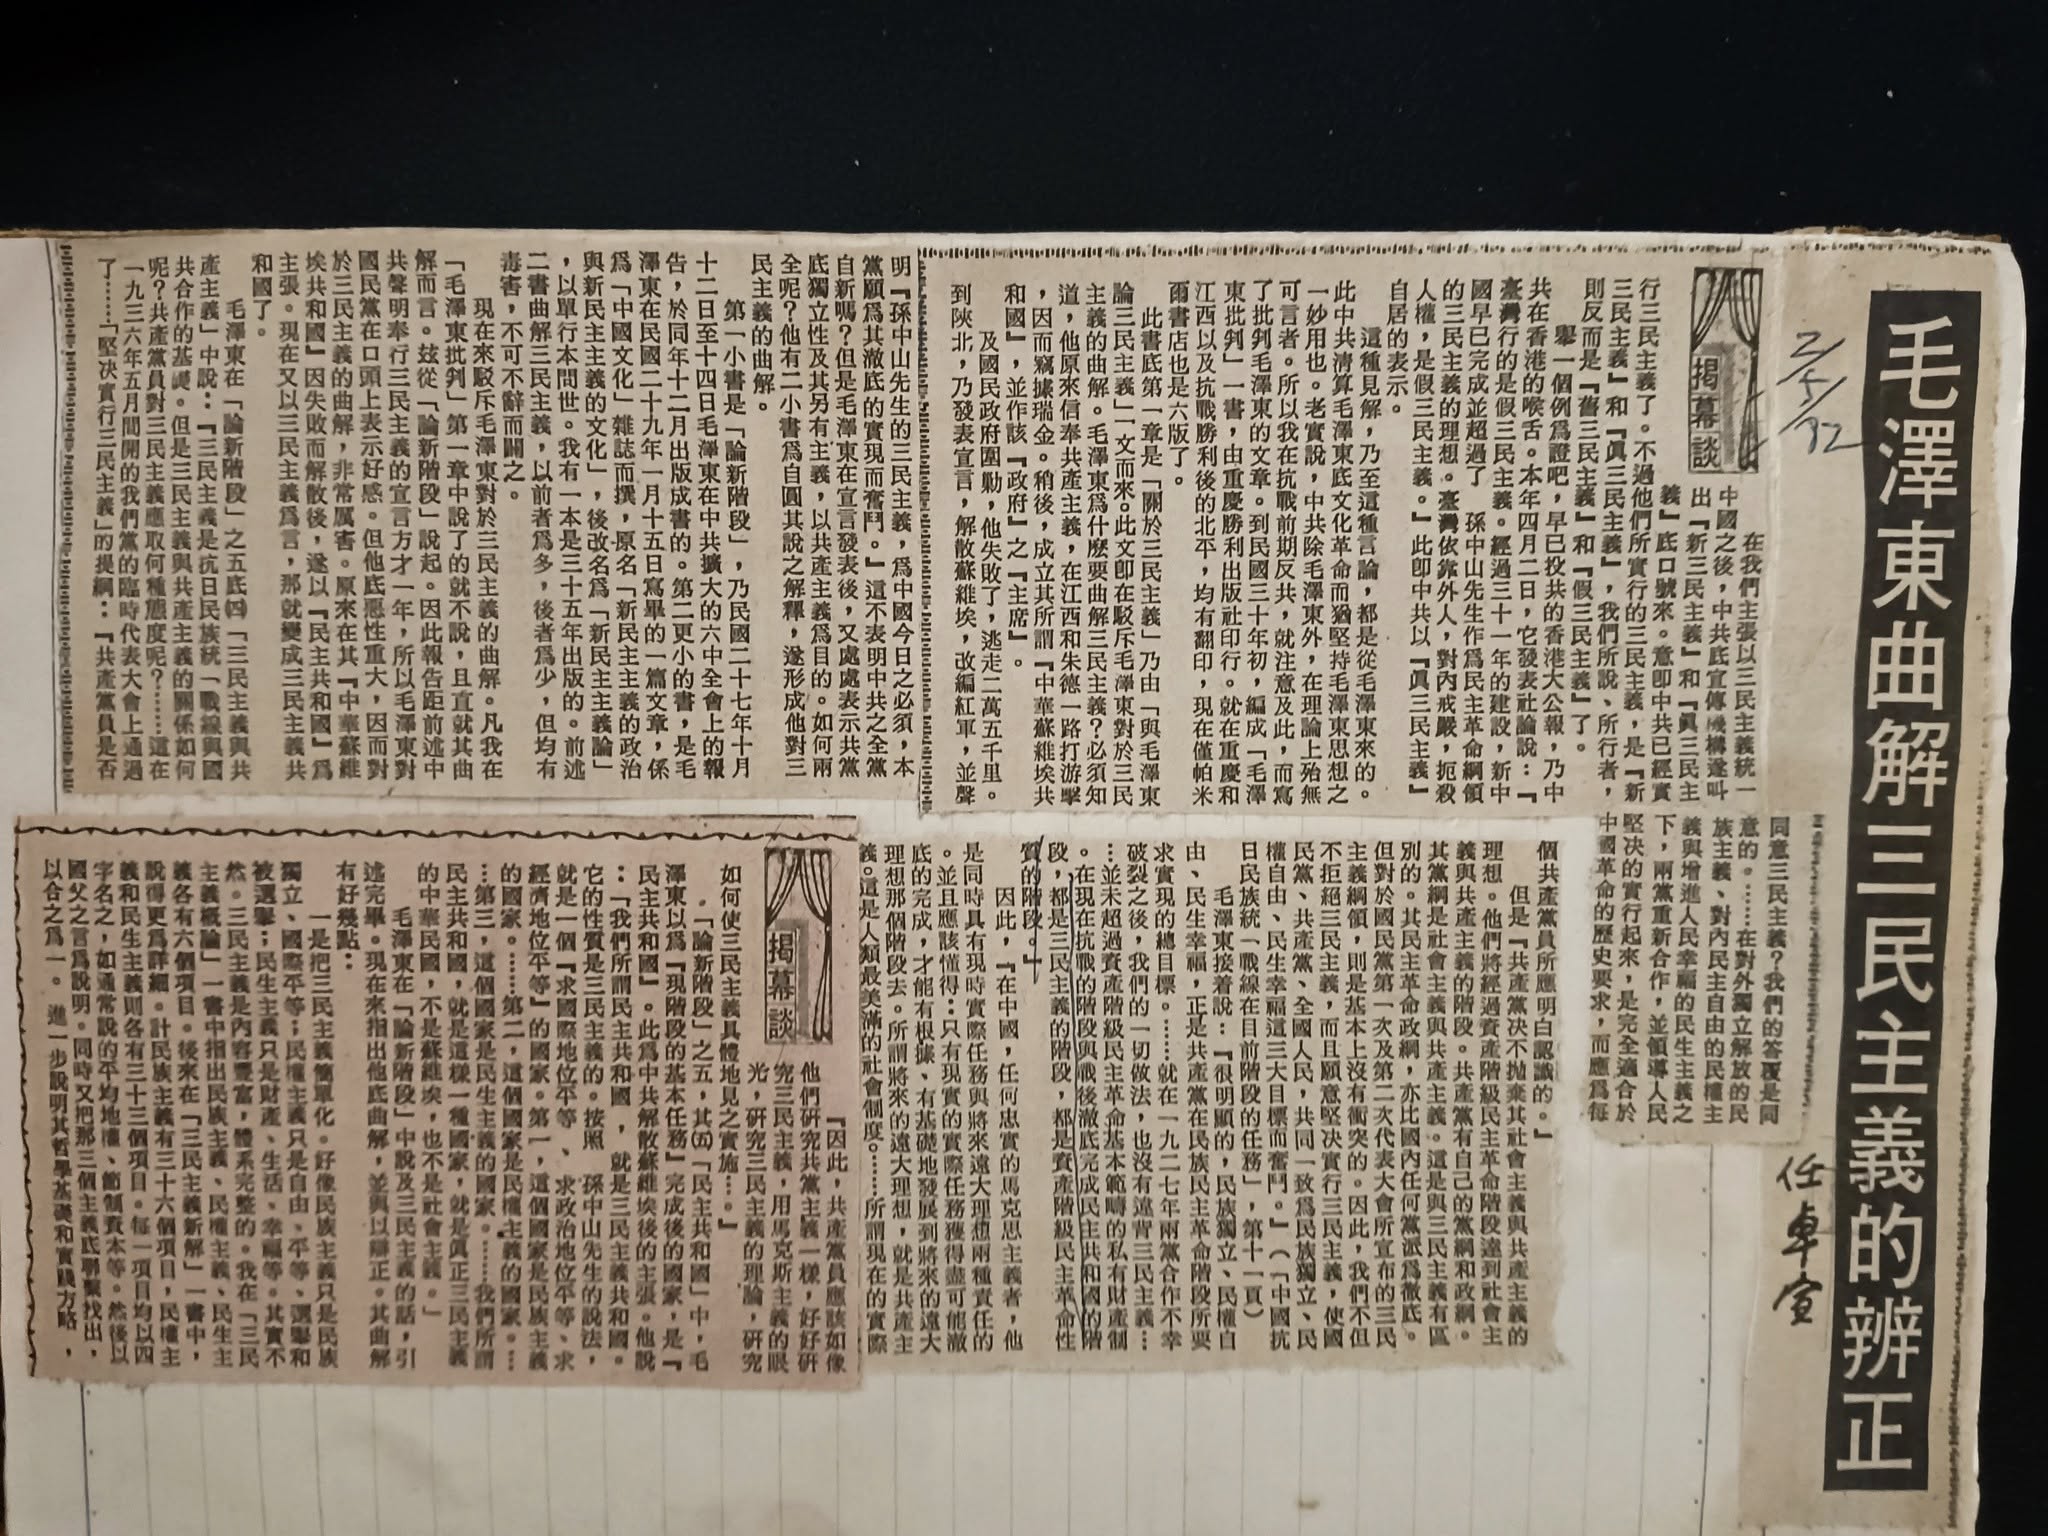 毛澤東曲解三民主義的辨正
2/5/92
任卓宣
揭幕談
在我們主張以三民主義統一
中國之後，中共底宣傳機構遂叫
出『新三民主義』和『眞三民主
義』底口號來。意卽中共已經實
行三民主義了。不過他們所實行的三民主義，是『新
三民主義』和『眞三民主義』，我們所說、所行者，
則反而是『舊三民主義』和『假三民主義』了。
舉一個例爲證吧，早已投共的香港大公報，乃中
共在香港的喉舌。本年四月二日，它發表社論說：『
臺灣行的是假三民主義。經過三十一年的建設，新中
國早已完成並超過了　孫中山先生作爲民主革命綱領
的三民主義的理想。臺灣依靠外人，對內戒嚴，扼殺
人權，是假三民主義。』此卽中共以『眞三民主義』
自居的表示。
這種見解，乃至這種言論，都是從毛澤東來的。
此中共清算毛澤東底文化革命而猶堅持毛澤東思想之
一妙用也。老實說，中共除毛澤東外，在理論上殆無
可言者。所以我在抗戰前期反共，就注意及此，而寫
了批判毛澤東的文章。到民國三十年初，編成「毛澤
東批判」一書，由重慶勝利出版社印行。就在重慶和
江西以及抗戰勝利後的北平，均有翻印，現在僅帕米
爾書店也是六版了。
此書底第一章是「關於三民主義」乃由「與毛澤東
論三民主義」一文而來。此文卽在駁斥毛澤東對於三民
主義的曲解。毛澤東爲什麼要曲解三民主義？必須知
道，他原來信奉共產主義，在江西和朱德一路打游擊
，因而竊據瑞金。稍後，成立其所謂『中華蘇維埃共
和國』，並作該『政府』之『主席』。
及國民政府圍勦，他失敗了，逃走二萬五千里。
到陝北，乃發表宣言，解散蘇維埃，改編紅軍，並聲
明『孫中山先生的三民主義，爲中國今日之必須，本
黨願爲其澈底的實現而奮鬥。』這不表明中共之全黨
自新嗎？但是毛澤東在宣言發表後，又處處表示共黨
底獨立性及其另有主義，以共產主義爲目的。如何兩
全呢？他有二小書爲自圓其說之解釋，遂形成他對三
民主義的曲解。
第一小書是「論新階段」，乃民國二十七年十月
十二日至十四日毛澤東在中共擴大的六中全會上的報
告，於同年十二月出版成書的。第二更小的書，是毛
澤東在民國二十九年一月十五日寫畢的一篇文章，係
爲「中國文化」雜誌而撰，原名「新民主主義的政治
與新民主主義的文化」，後改名爲「新民主主義論」
，以單行本問世。我有一本是三十五年出版的。前述
二書曲解三民主義，以前者爲多，後者爲少，但均有
毒害，不可不辭而闢之。
現在來駁斥毛澤東對於三民主義的曲解。凡我在
「毛澤東批判」第一章中說了的就不說，且直就其曲
解而言。玆從「論新階段」說起。因此報告距前述中
共聲明奉行三民主義的宣言方才一年，所以毛澤東對
國民黨在口頭上表示好感。但他底惡性重大，因而對
於三民主義的曲解，非常厲害。原來在其『中華蘇維
埃共和國』因失敗而解散後，遂以『民主共和國』爲
主張。現在又以三民主義爲言，那就變成三民主義共
和國了。
毛澤東在「論新階段」之五底㈣「三民主義與共
產主義」中說：『三民主義是抗日民族統一戰線與國
共合作的基礎。但是三民主義與共產主義的關係如何
呢？共產黨員對三民主義應取何種態度呢？……這在
一九三六年五月間開的我們黨的臨時代表大會上通過
了……「堅決實行三民主義」的提綱：『共產黨員是否
同意三民主義？我們的答覆是同
意的。……在對外獨立解放的民
族主義、對內民主自由的民權主
義與增進人民幸福的民生主義之
下，兩黨重新合作，並領導人民
堅決的實行起來，是完全適合於
中國革命的歷史要求，而應爲每
個共產黨員所應明白認識的。』
但是『共產黨決不拋棄其社會主義與共產主義的
理想。他們將經過資產階級民主革命階段達到社會主
義與共產主義的階段。共產黨有自己的黨綱和政綱。
其黨綱是社會主義與共產主義。這是與三民主義有區
別的。其民主革命政綱，亦比國內任何黨派爲徹底。
但對於國民黨第一次及第二次代表大會所宣布的三民
主義綱領，則是基本上沒有衝突的。因此，我們不但
不拒絕三民主義，而且願意堅決實行三民主義，使國
民黨、共產黨、全國人民，共同一致爲民族獨立、民
權自由、民生幸福這三大目標而奮鬥。』（「中國抗
日民族統一戰線在目前階段的任務」，第十一頁）
毛澤東接着說：『很明顯的，民族獨立、民權自
由、民生幸福，正是共產黨在民族民主革命階段所要
求實現的總目標。……就在一九二七年兩黨合作不幸
破裂之後，我們的一切做法，也沒有違背三民主義…
…並未超過資產階級民主革命基本範疇的私有財產制
。在現在抗戰的階段與戰後澈底完成民主共和國的階
段，都是三民主義的階段，都是資產階級民主革命性
質的階段。』
因此，『在中國，任何忠實的馬克思主義者，他
是同時具有現時實際任務與將來遠大理想兩種責任的
。並且應該懂得：只有現實的實際任務獲得盡可能澈
底的完成，才能有根據、有基礎地發展到將來的遠大
理想那個階段去。所謂將來的遠大理想，就是共產主
義。這是人類最美滿的社會制度。……所謂現在的實際
揭幕談
『因此，共產黨員應該如像
他們研究共黨主義一樣，好好研
究三民主義，用馬克斯主義的眼
光，研究三民主義的理論，研究
如何使三民主義具體地見之實施…。』
「論新階段」之五，其㈤「民主共和國」中，毛
澤東以爲『現階段的基本任務』完成後的國家，是『
民主共和國』。此爲中共解散蘇維埃後的主張。他說
：『我們所謂民主共和國，就是三民主義共和國。
它的性質是三民主義的。按照　孫中山先生的說法，
就是一個『求國際地位平等、求政治地位平等、求
經濟地位平等』的國家。第一，這個國家是民族主義
的國家。……第二，這個國家是民權主義的國家。…
…第三，這個國家是民生主義的國家。……我們所謂
民主共和國，就是這樣一種國家，就是眞正三民主義
的中華民國，不是蘇維埃，也不是社會主義。』
毛澤東在「論新階段」中說及三民主義的話，引
述完畢。現在來指出他底曲解，並與以辯正。其曲解
有好幾點：
一是把三民主義簡單化。好像民族主義只是民族
獨立、國際平等；民權主義只是自由、平等、選舉和
被選舉；民生主義只是財產、生活、幸福等。其實不
然。三民主義是內容豐富，體系完整的。我在「三民
主義概論」一書中指出民族主義、民權主義、民生主
義各有六個項目。後來在「三民主義新解」一書中，
說得更爲詳細。計民族主義有三十六個項目，民權主
義和民生主義則各有三十三個項目。每一項目均以四
字名之，如通常說的平均地權、節制資本等。然後以
國父之言爲說明。同時又把那三個主義底聯繫找出，
以合之爲一。進一步說明其哲學基礎和實踐方略，